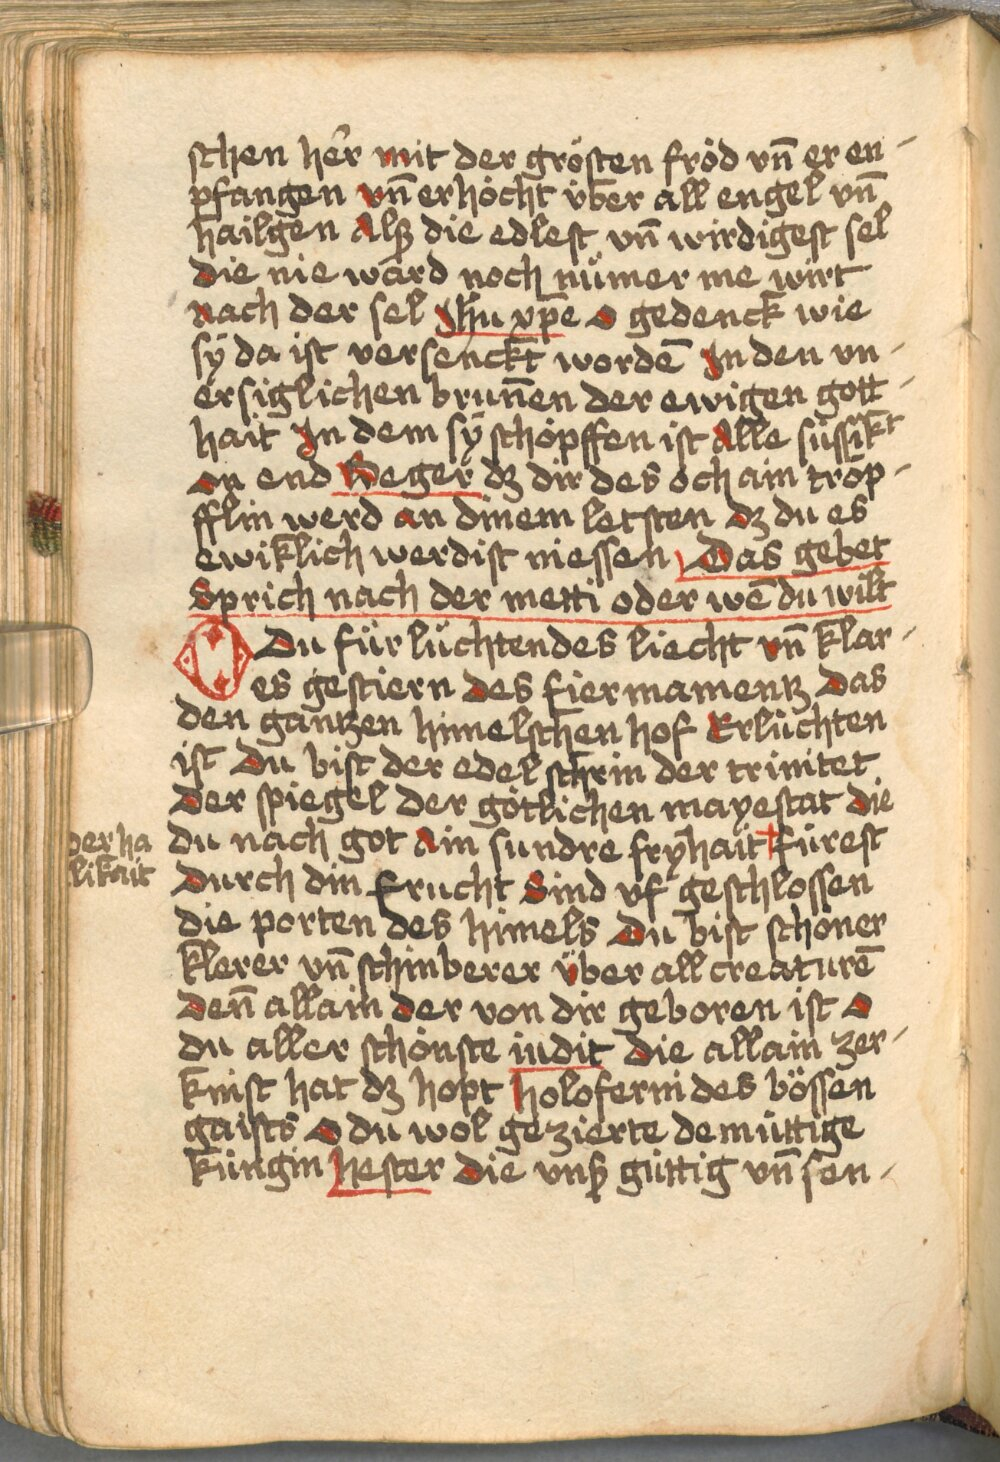 schen her mit der grösten fröd vn̄ er en-
pfangen vn̄ erhöcht v̈ber all engel vn̄
hailgen Alß die edlest vn̄ wirdigest sel
die nie ward noch nümer me wirt
nach der sel Jhu xp̄e O gedenck wie
sÿ da ist versenckt wordē In den vn-
ersiglichen brun̄en der ewigen gott-
hait In dem sÿ schöpffen ist Alle süssikt
on end Beger dz dir des och ain tröp-
fflin werd an dinem letsten dz du es
ewiklich werdist niessen Das gebet
Sprich nach der metti oder wē du wilt
O Du für lüchtendes liecht vn̄ klar-
es gestiern des fiermamentz Das
den gantzen himelschen hof Erlüchten
ist Du bist der edel schrin der trinitet
Der spiegel der götlichen mayestat die
du nach got Ain sundre frÿhait + fürest
der ha
likait
Durch din frucht Sind vf geschlossen
die porten des himels Du bist schöner
klerer vn̄ schinberer v̈ber all creaturē
Den̄ allain der von dir geboren ist O
du aller schönste iudit Die allain zer-
knist hat dz hopt holoferni des bössen
gaists O du wol gezierte demüttige
küngin hester Die vnß güttig vn̄ sen-